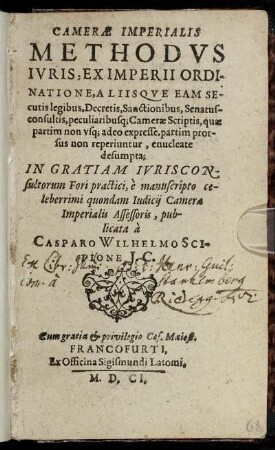 CAMERÆ IMPERIALIS
METHODVS
IVRIS, EX IMPERII ORDI-
NATIONE, ALIISQVE EAM SE-
cutis legibus, Decretis, Sanctionibus, Senatus-
consultis, peculiaribusq; Cameræ Scriptis, quæ
partim non usq; adeo expressè, partim pror-
sus non reperiuntur, enucleate
desumpta;
IN GRATIAM IVRISCON-
sultorum Fori practici, è manuscripto ce-
leberrimi quondam Iudicij Cameræ
Imperialis Assessoris, pub-
licata à
CASPARO WILHELMO SCI-
PIONE J. C.
Ex Libr:
Henr: Guil:
à
Starhemberg
Cum gratia & privilegio Cæs. Maiest.
FRANCOFURTI,
Ex Officina Sigismundi Latomi.
M. D. CI.